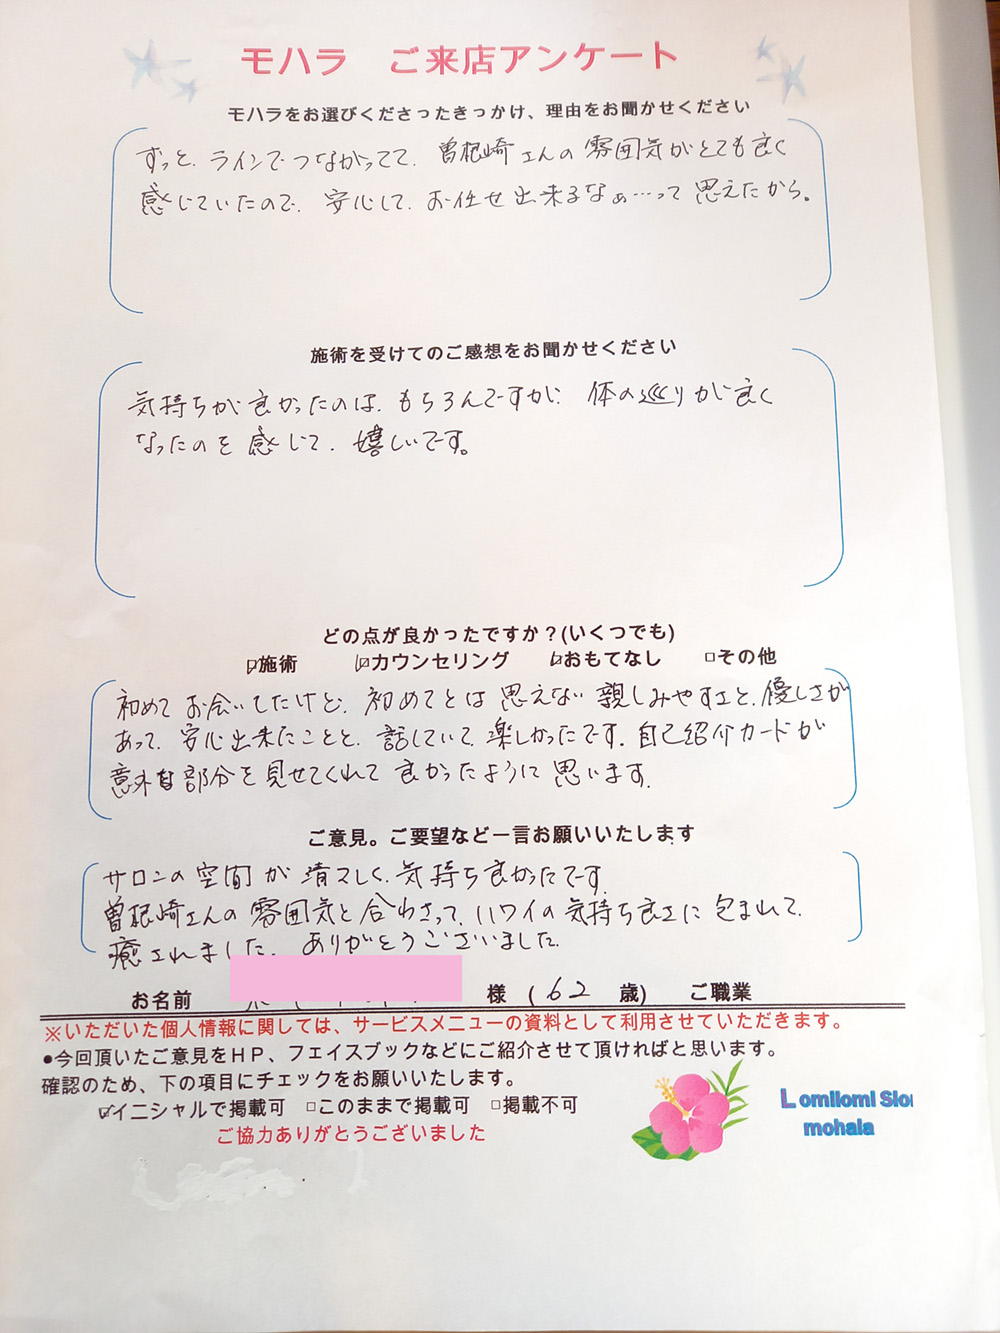 モハラ ご来店アンケート
モハラをお選びくださったきっかけ、理由をお聞かせください
ずっと、ラインでつながってて、曽根崎さんの雰囲気がとても良く
感じていたので、安心して、お任せ出来るなぁ…って思えたから。
施術を受けてのご感想をお聞かせください
気持ちが良かったのは、もちろんですが、体の巡りが良く
なったのを感じて、嬉しいです。
どの点が良かったですか？(いくつでも)
☑施術 ☑カウンセリング ☑おもてなし □その他
初めてお会いしたけど、初めてとは思えない親しみやすさと、優しさが
あって、安心出来たことと、話していて、楽しかったです。自己紹介カードが
意外な部分を見せてくれて良かったように思います。
ご意見。ご要望など一言お願いいたします
サロンの空間が清々しく、気持ち良かったです。
曽根崎さんの雰囲気と合わさって、ハワイの気持ち良さに包まれて、
癒されました。ありがとうございました。
お名前 様 (62 歳) ご職業
※いただいた個人情報に関しては、サービスメニューの資料として利用させていただきます。
●今回頂いたご意見をHP、フェイスブックなどにご紹介させて頂ければと思います。
確認のため、下の項目にチェックをお願いいたします。
☑イニシャルで掲載可 □このままで掲載可 □掲載不可
ご協力ありがとうございました
Lomilomi Slo
mohala